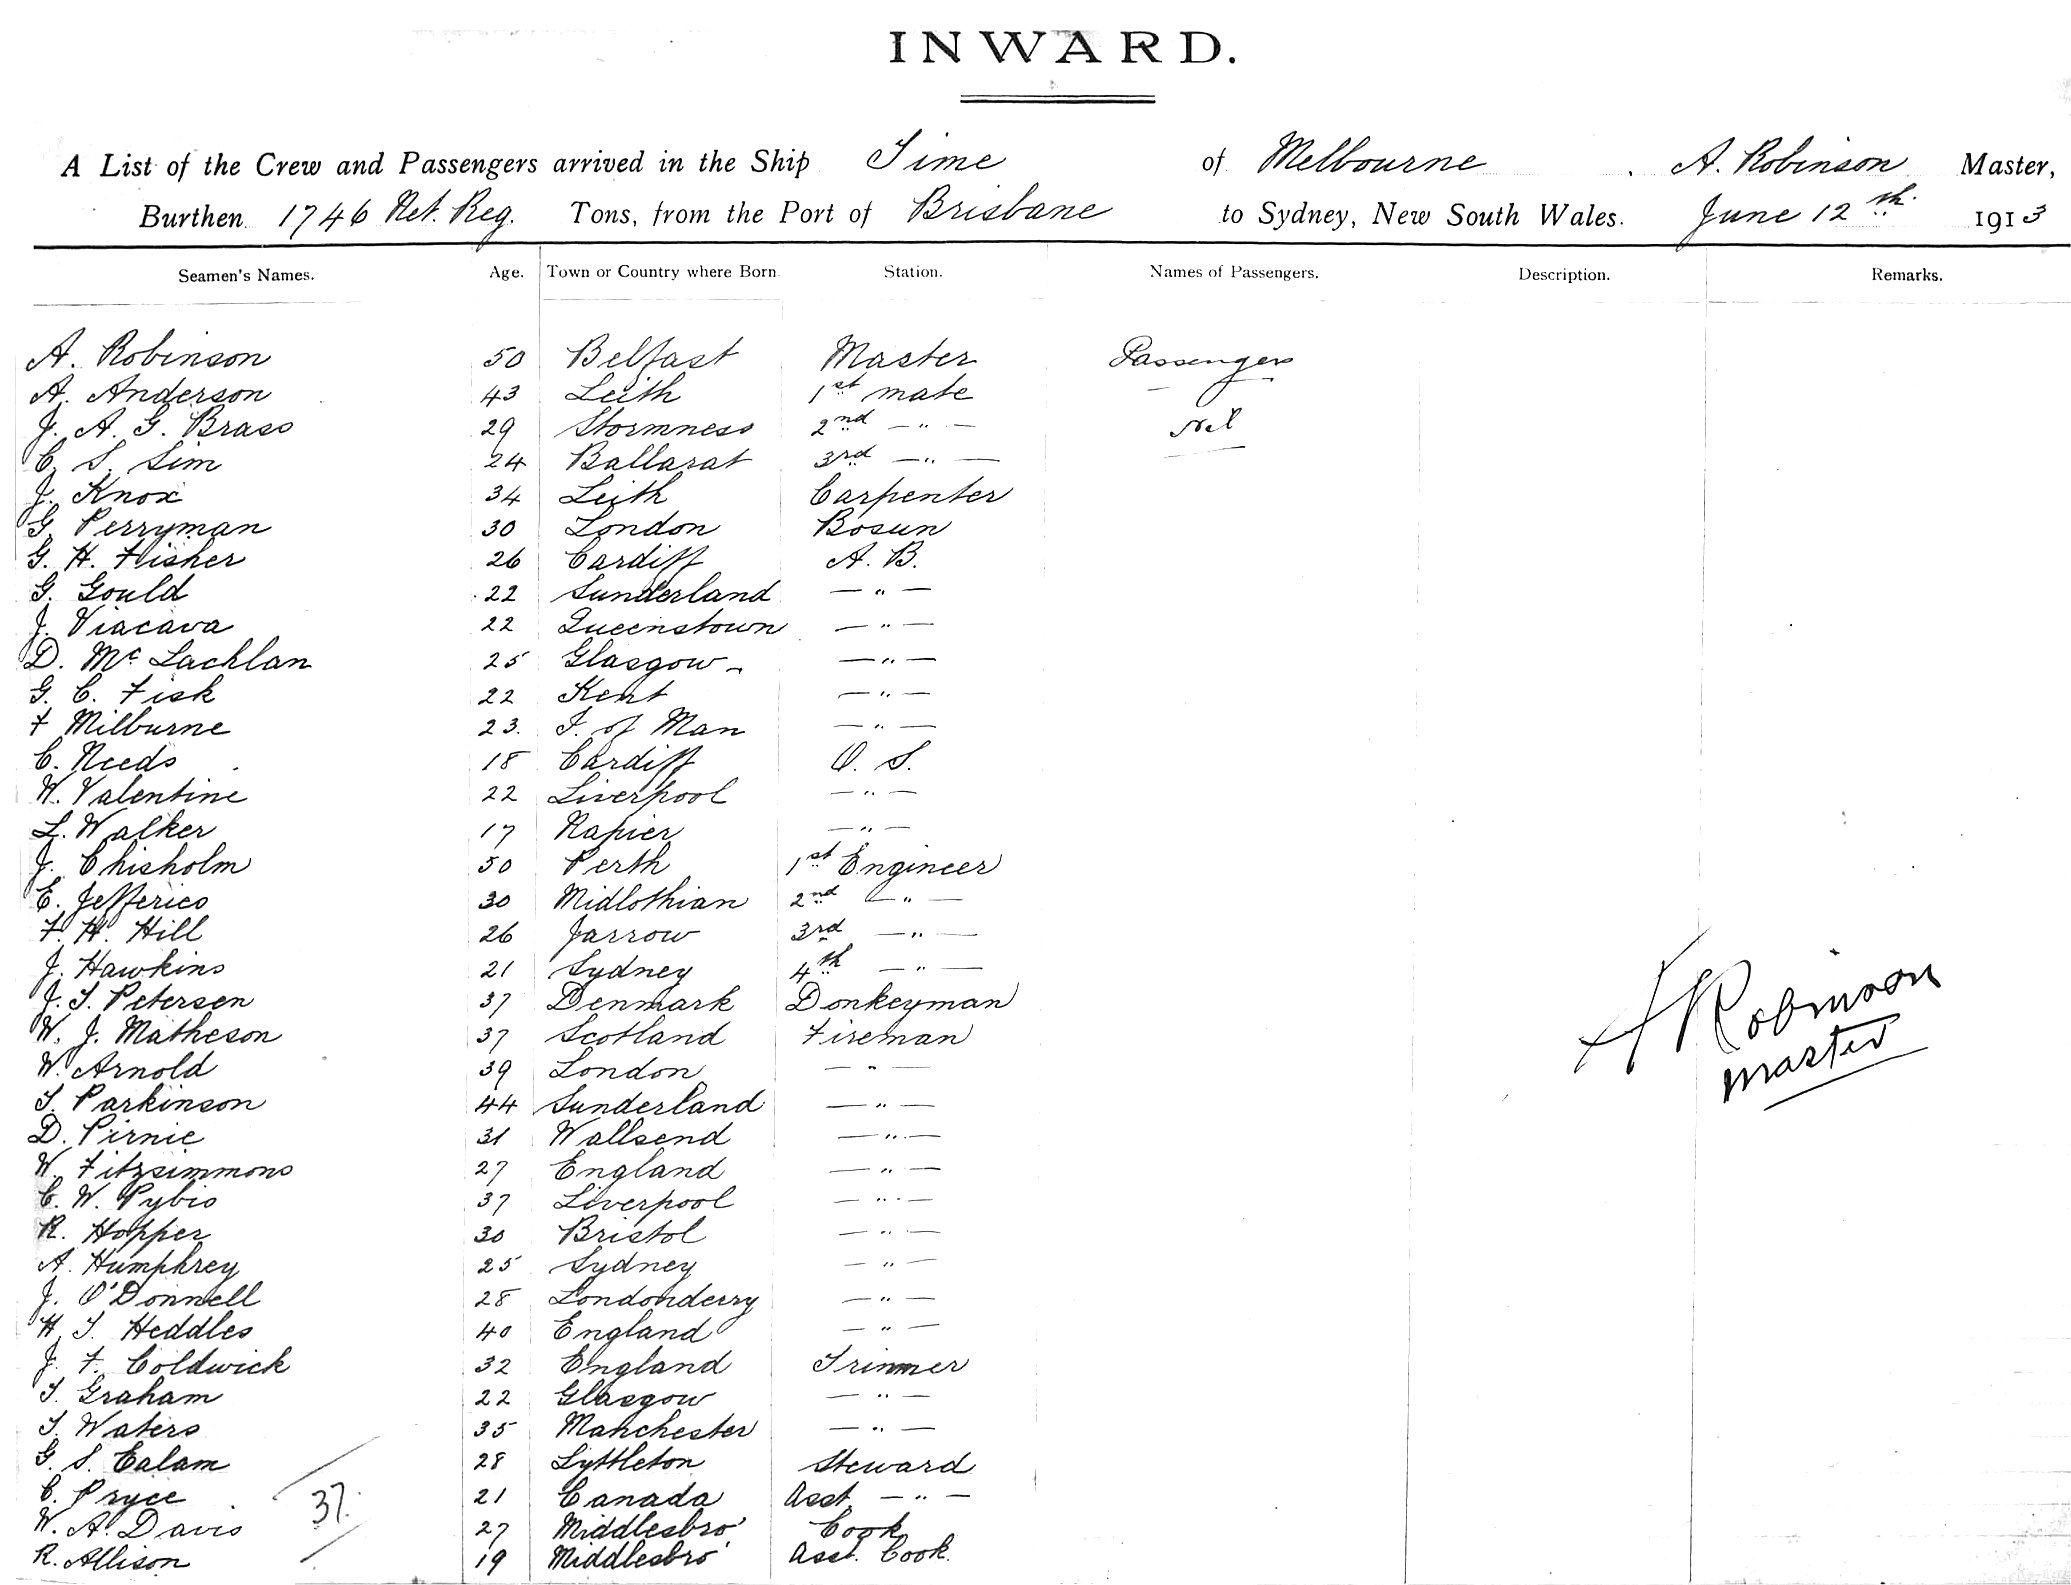 INWARD.
A List of the Crew and Passengers arrived in the Ship Time of Melbourne . A. Robinson Master,
Burthen 1746 Net. Reg. Tons, from the Port of Brisbane to Sydney, New South Wales. June 12th. 1913
Seamen's Names. Age. Town or Country where Born Station. Names of Passengers. Description. Remarks.
A. Robinson 50 Belfast Master Passengers
A. Anderson 43 Leith 1st mate
J. A. G. Brass 29 Stormness 2nd — " — Nil
C. S. Sim 24 Ballarat 3rd — " —
J. Knox 34 Leith Carpenter
G. Perryman 30 London Bosun
G. H. Fisher 26 Cardiff A. B.
G. Gould 22 Sunderland — " —
J. Viacava 22 Queenstown — " —
D. Mc Lachlan 25 Glasgow — " —
G. C. Fisk 22 Kent — " —
F Milburne 23. I. of Man — " —
C. Needs 18 Cardiff O. S.
W. Valentine 22 Liverpool — " —
L. Walker 17 Napier — " —
J. Chisholm 50 Perth 1st Engineer
E. Jefferies 30 Midlothian 2nd — " —
F. H. Hill 26 Jarrow 3rd — " —
J. Hawkins 21 Sydney 4th — " —
J. T. Petersen 37 Denmark Donkeyman
W. J. Matheson 37 Scotland Fireman
W. Arnold 39 London — " —
T. Parkinson 44 Sunderland — " —
D. Pirnie 31 Wallsend — " —
W. Fitzsimmons 27 England — " —
C. W. Pybis 37 Liverpool — " —
R. Hopper 30 Bristol — " —
A. Humphrey 25 Sydney — " —
J. O'Donnell 28 Londonderry — " —
H. T. Heddles 40 England — " —
J. F. Coldwick 32 England Trimmer
T. Graham 22 Glasgow — " —
T. Waters 35 Manchester — " —
G. S. Ealam 28 Lyttleton Steward
C. Pryce 21 Canada Asst. — " —
W. A. Davis 27 Middlesbro' Cook
R. Allison 19 Middlesbro' Asst. Cook.
37.
A Robinson
Master